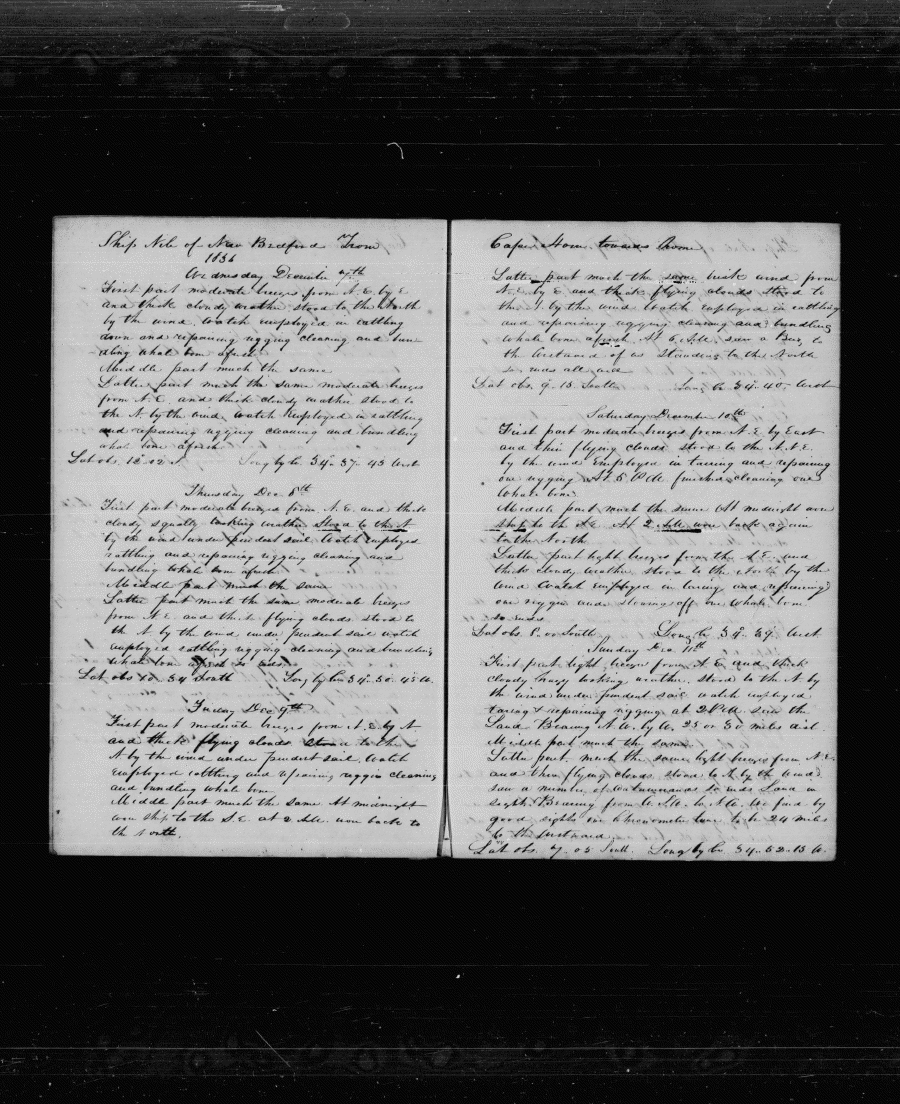 Ship Nile of New Bedford From
1836
Wednesday December 7th
First part moderate breezes from N.E. by E
and thick cloudy weather stood to the North
by the wind Watch employed in rattling
down and repairing rigging cleaning and bun
dling whale bone afresh
Middle part much the same
Latter part much the same moderate breezes
from N.E. and thick cloudy weather stood to
the N by the wind, watch employed in rattling
and repairing rigging cleaning and bundling
whale bone afresh
Lat obs. 12 12 S. Long by Cr. 34 37 45 West
Thursday Dec 8th
First part moderate breezes from N.E. and thick
cloudy squally looking weather stood to the N
by the wind under prudent sail Watch employed
rattling and repairing rigging cleaning and
bundling whale bone afresh
Middle part much the same
Latter part much the same moderate breezes
from N.E. and thick flying clouds stood to
the N by the wind under prudent sail watch
employed rattling rigging cleaning and bundling
whale bone afresh so ends
Lat obs 10 34 South Long by Cr 34 50 45 W.
Friday Dec 9th
First part moderate breezes from N.E. by N
and thick flying clouds stood to the
N by the wind under prudent sail Watch
employed rattling and repairing riggin cleaning
and bundling whale bone
Middle part much the same At midnight
wore ship to the S.E. at 2 AM wore back to
the North.
Cape Horn towards home
Latter part much the same brisk wind from
N.E. by E and thick flying clouds stood to
the N by the wind Watch employed in rattling
and repairing rigging cleaning and bundling
whale bone afresh At 6 AM saw a Brig to
the westward of us standing to the North
so ends all aid
Lat obs. 9. 13 South Long 34. 40. West
Saturday December 10th
First part moderate breezes from N.E. by East
and thin flying clouds stood to the N.N.E.
by the wind Employed in tarring and repairing
our rigging At 5 PM finished cleaning our
Whale bone
Middle part much the same At midnight wore
ship to the S.E. At 2 AM wore back again
to the North
Latter part light breezes from the S.E. and
thick cloudy weather stood to the North by the
wind Watch employed in taring and repairing
our riggin and stowing off our Whale bone
so ends
Lat obs 8. South Long by 34. 39. West
Sunday Dec 11th
First part light breezes from N.E. and thick
cloudy looking weather. stood to the N by
the wind under prudent sail watch employed
taring & repairing rigging at 2 PM saw the
Land Bearing N.W. by W. 25 or 30 miles dist
Middle part much the same
Latter part, much the same light breezes from N.E.
and thin flying clouds stood to N by the wind
saw a number of Cattamarands so ends Land in
sight Bearing from W.S.W. to N.W. We find by
good sights our Chronometer time to be 24 miles
to the westward
Lat obs. 7. 05 South. Long by Cr. 34. 52. 15 W.